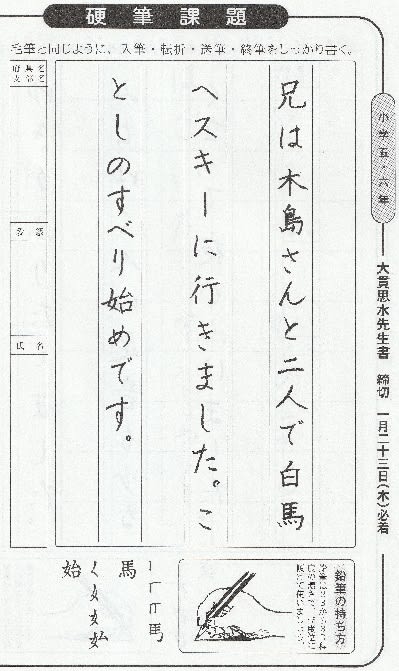 硬筆課題
毛筆と同じように、入筆・転折・送筆・終筆をしっかり書く。
小学五・六年
大貫思水先生書 締切 一月二十三日(木)必着
兄は木島さんと二人で白馬
へスキーに行きました。こ
としのすべり始めです。
府県名
支部名
氏名
鉛筆の持ち方
馬
始